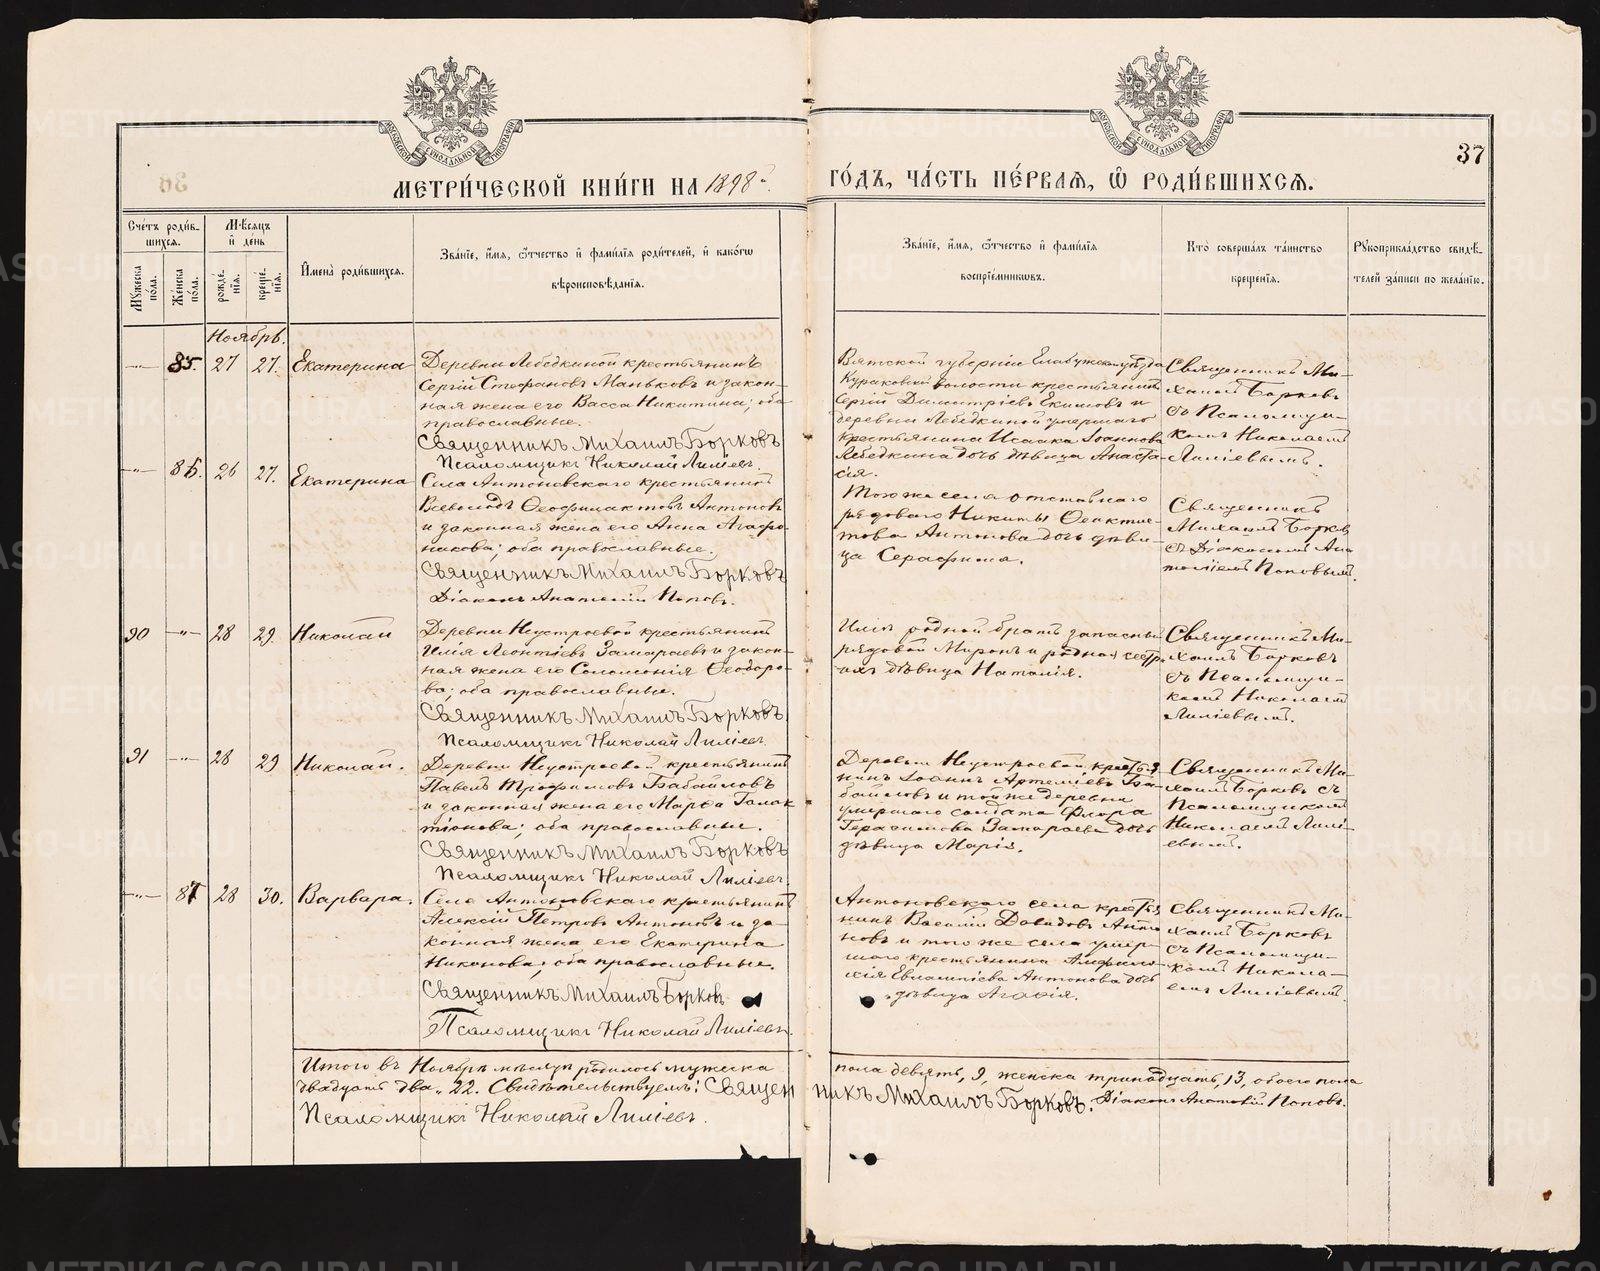 МЕТРИ́ЧЕСКОЙ КНИ́ГИ НА 1898 й
ГО́ДЪ, ЧА́СТЬ ПЕ́РВАѦ, Ѿ РОДИ́ВШИХСѦ.
37
Сче́тъ роди́в-
шихсѧ.
Мѣ́сѧцъ
и҆ де́нь
Мꙋ́жеска
по́ла.
Же́нска
по́ла.
рожде́-
нїѧ.
креще́-
нїѧ.
И҆мена̀ роди́вшихсѧ.
Зва́нїе, и҆́мѧ, ѻ҆́тчество и҆ фами́лїѧ роди́телей, и҆ како́гѡ
вѣроисповѣ́данїѧ.
Зва́нїе, и҆́мѧ, ѻ҆́тчество и҆ фами́лїѧ
воспрїе́мниковъ.
Кто̀ соверша́лъ та́инство
креще́нїѧ.
Рꙋкоприкла́дство свидѣ́-
телей за́писи по жела́нїю.
Ноябрь.
—"— 85. 27 27. Екатерина
Деревни Лебедкиной крестьянинъ
Сергій Стефановъ Маньковъ и закон-
ная жена его Васса Никитина; оба
православные.
Священникъ Михаилъ Борковъ
Псаломщикъ Николай Лиліевъ.
Вятской губерніи Елабужскаго уѣзда
Кураковской волости крестьянинъ
Сергій Димитріевъ Екимовъ и
деревни Лебедкиной умершаго
крестьянина Исаака Іоаннова
Лебедкина дочь дѣвица Анаста-
сія.
Священникъ Ми-
хаилъ Борковъ
съ Псаломщи-
комъ Николаемъ
Лиліевымъ.
—"— 86. 26 27. Екатерина
Села Антоновскаго крестьянинъ
Всеволодъ Ѳеофилактовъ Антоновъ
и законная жена его Анна Агафо-
никова; оба православные.
Священникъ Михаилъ Борковъ
Діаконъ Анатолій Поповъ.
Того же села отставнаго
рядоваго Никиты Ѳеоктис-
това Антонова дочь дѣви-
ца Серафима.
Священникъ
Михаилъ Борковъ
съ Діакономъ Ана
толіемъ Поповымъ.
90 —"— 28 29. Николай
Деревни Неустроевой крестьянинъ
Илія Леонтіевъ Замараевъ и закон-
ная жена его Соломонія Ѳеодоро-
ва; оба православные.
Священникъ Михаилъ Борковъ.
Псаломщикъ Николай Лиліевъ.
родной братъ запасный
рядовой Миронъ и родная сестра
ихъ дѣвица Наталія.
Священникъ Ми-
хаилъ Борковъ
съ Псаломщи-
комъ Николаемъ
Лиліевымъ.
91 —"— 28 29 Николай.
Деревни Неустроевой крестьянинъ
Павелъ Трофимовъ Бабайловъ
и законная жена его Марѳа Галак
тіонова; оба православные.
Священникъ Михаилъ Борковъ
Псаломщикъ Николай Лиліевъ.
Деревни Неустроевой крестья
нинъ Іоаннъ Артеміевъ Ба-
байловъ и той же деревни
умершаго солдата Флора
Герасимова Замараева дочь
дѣвица Марія.
Священникъ Ми-
хаилъ Борковъ съ
Псаломщикомъ
Николаемъ Лилі-
евымъ.
—"— 87 28 30. Варвара.
Села Антоновскаго крестьянинъ
Алексій Петровъ Антоновъ и за-
конная жена его Екатерина
Никонова; оба православные.
Священникъ Михаилъ Борковъ
Псаломщикъ Николай Лиліевъ.
Антоновскаго села крестья
нинъ Василій Давидовъ Анто
новъ и того же села умер-
шаго крестьянина Амфило-
хія Евлампіева Антонова дочь
дѣвица Агафія.
Священникъ Ми-
хаилъ Борковъ
съ Псаломщи-
комъ Никола-
емъ Лиліевымъ.
Итого въ Ноябрѣ мѣсяцѣ родилось мужеска пола девять, 9, женска тринадцать, 13, обоего пола
двадцать два, 22. Свидѣтельствуемъ: Священникъ Михаилъ Борковъ. Діаконъ Анатолій Поповъ.
Псаломщикъ Николай Лиліевъ.